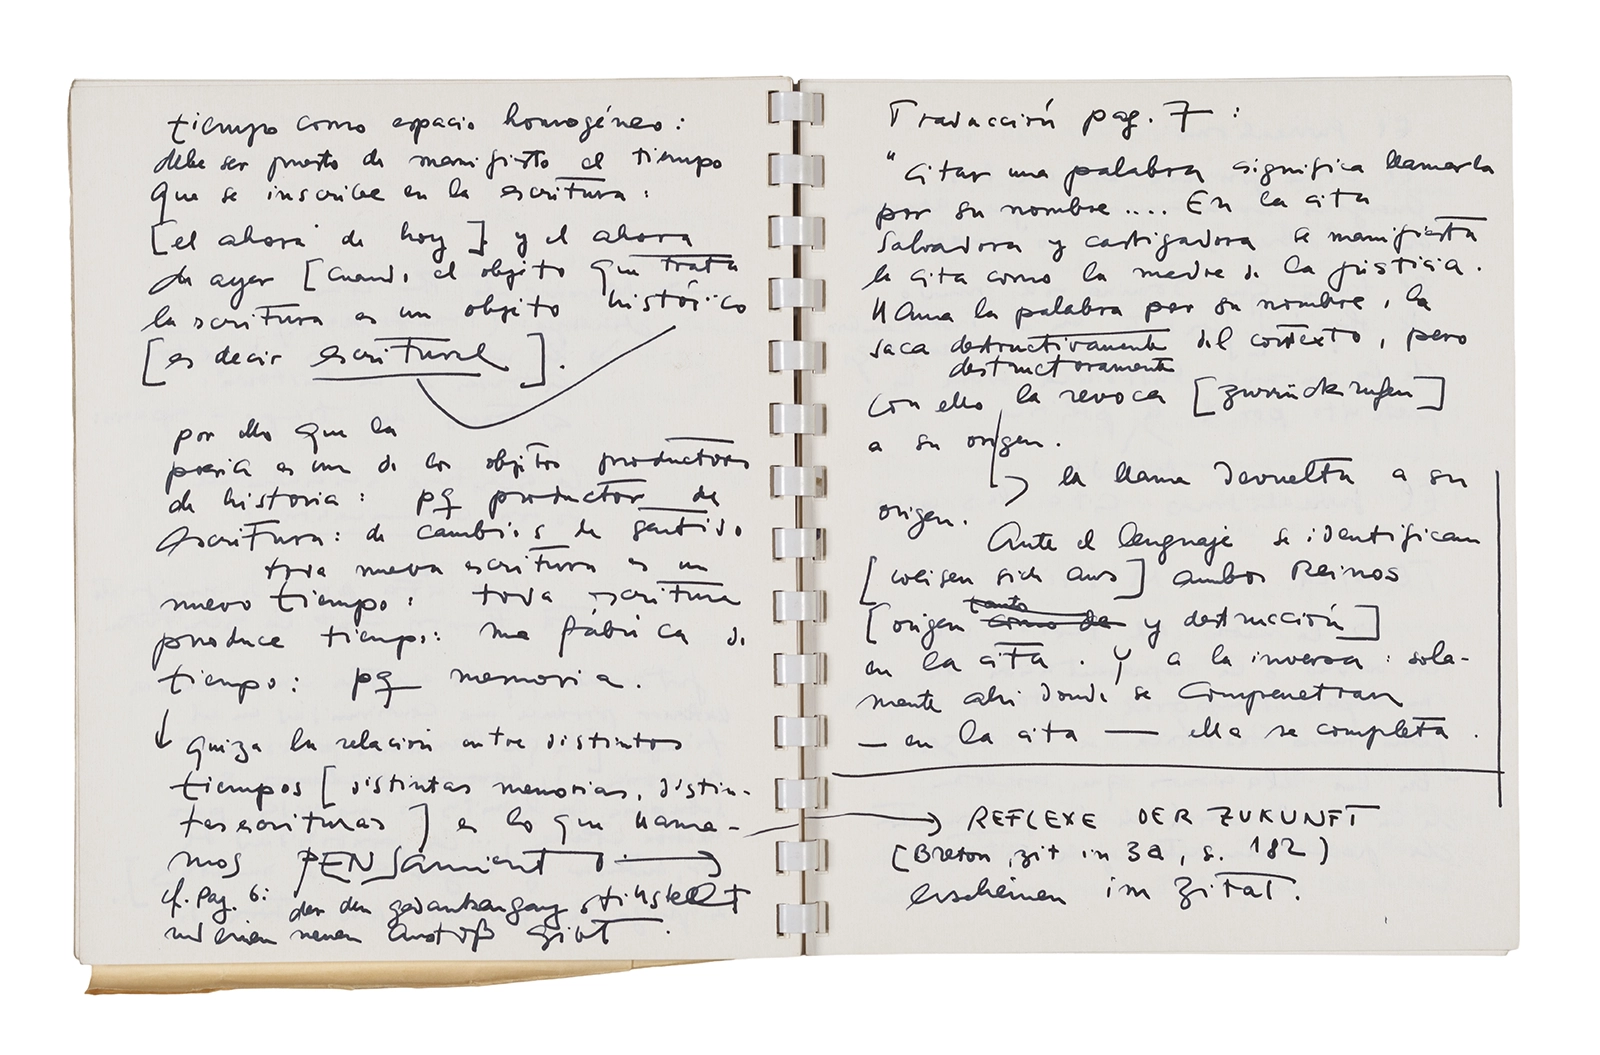 tiempo como espacio homogéneo:
debe ser puesto de manifiesto el tiempo
que se inscribe en la escritura:
[el ahora de hoy] y el ahora
de ayer [cuando el objeto que trata
la scritura es un objeto histórico
[es decir escritural].
por ello que la
poesia es uno de los objetos productores
de historia: pq productor de
escritura: de cambios de sentido
toda nueva escritura es un
nuevo tiempo: toda escritura
produce tiempo: una fábrica de
tiempo: pq memoria.
↓ quiza la relación entre distintos
tiempos [distintas memorias, distin-
tas escrituras] es lo que llama-
mos PENSamiento →
cf. pag. 6: der den gedankengang stillstellt
und einen neuen Anstoß gibt.
Traducción pag. 7:
"Citar una palabra significa llamarla
por su nombre .... En la cita
Salvadora y castigadora se manifiesta
la cita como la madre de la justicia.
llama la palabra por su nombre, la
saca destructivamente del contexto, pero
destructoramente
con ello la revoca [zurückrufen]
a su origen.
→ la llama devuelta a su
origen.
Ante el lenguaje se identifican
[weisen sich aus] ambos Reinos
[origen tanto como de y destrucción]
en la cita. Y a la inversa: sola-
mente ahi donde se compenetran
— en la cita — ella se completa.
→ REFLEXE DER ZUKUNFT
(Breton, zit in 3a, s. 182)
erscheinen im Zitat.